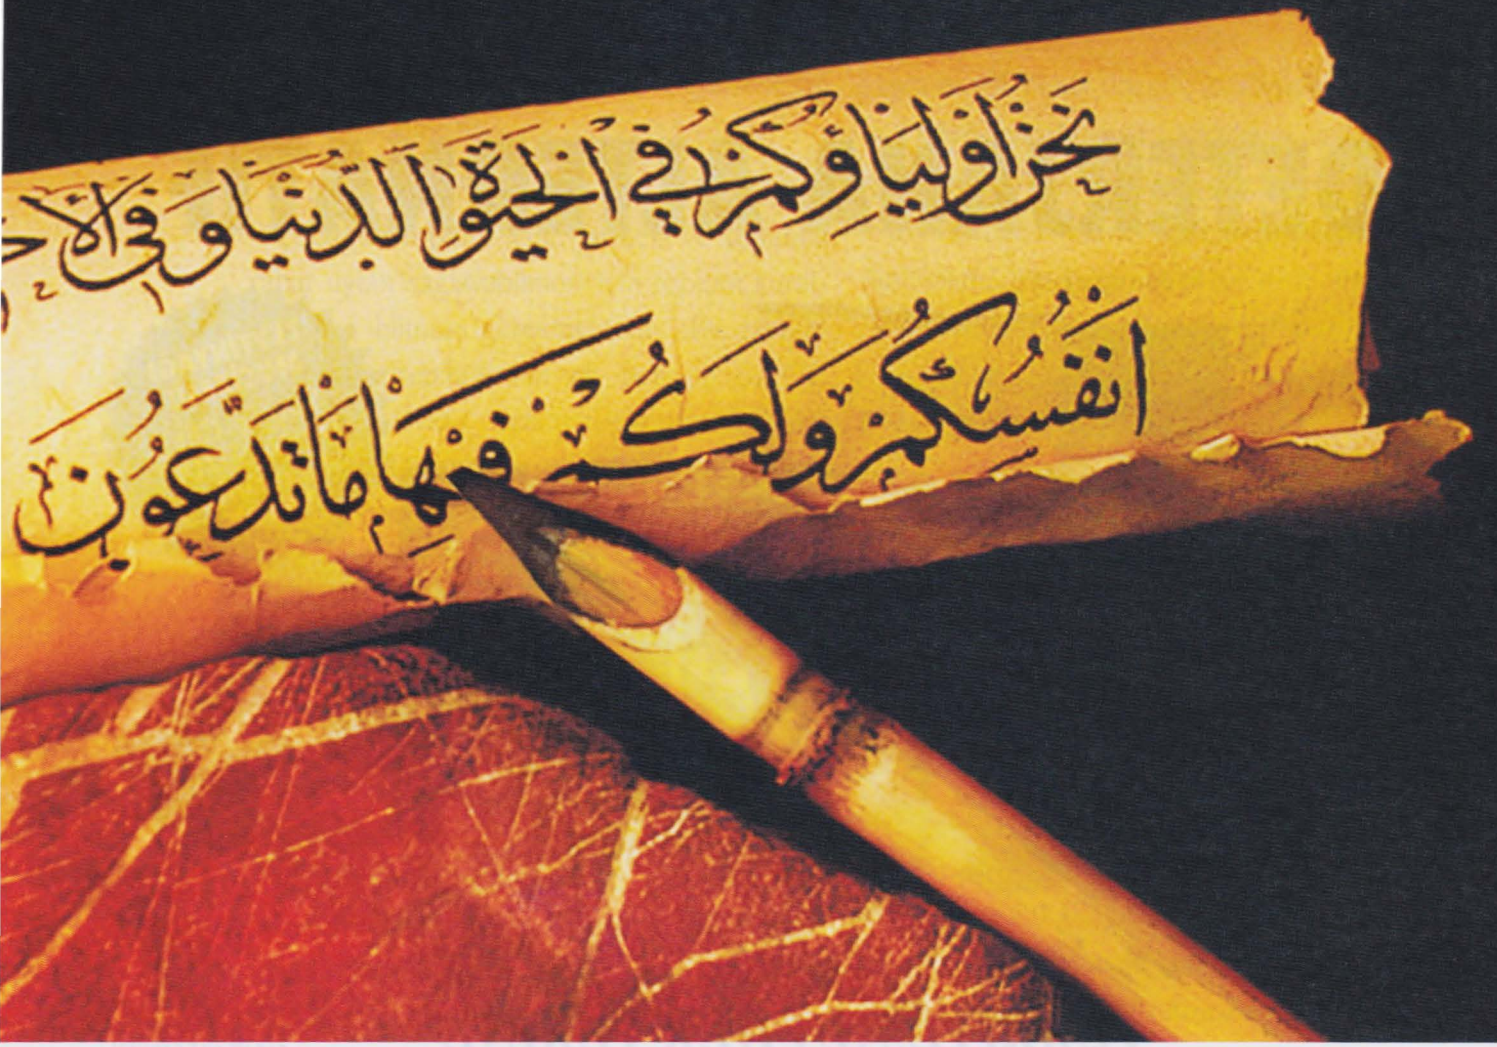 نَحْنُ اَوْلِيَاؤُكُمْ فِي الْحَيٰوةِ الدُّنْيَا وَفِي الْاٰ
اَنْفُسُكُمْ وَلَكُمْ فِيْهَا مَا تَدَّعُوْنَ